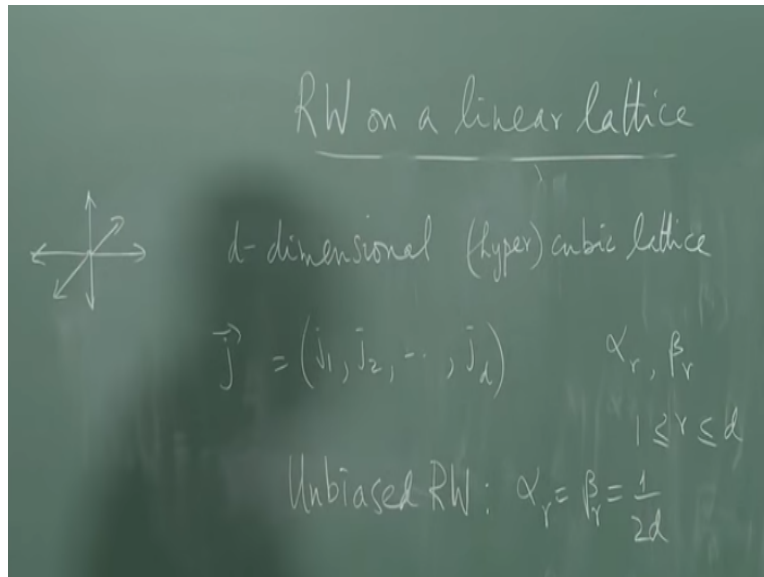 RW on a linear lattice
d-dimensional (hyper) cubic lattice
j⃗ = (j₁, j₂, ⋯, j_d) α_r, β_r
1 ≤ r ≤ d
Unbiased RW : α_r = β_r = 1/2d